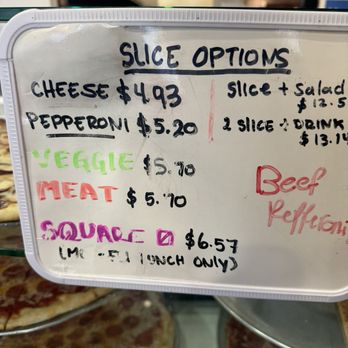 SLICE OPTIONS
CHEESE $4.93
PEPPERONI $5.20
VEGGIE $5.70
MEAT $5.70
SQUARE $6.57
LUNCH ONLY)
Slice + Salad
$12.5
2 SLICE + DRINK
$13.14
Beef
Pepperoni